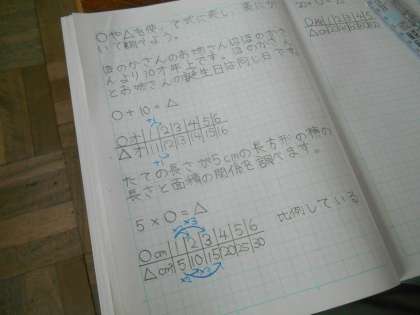 〇や△を使って式に表し、表にか
いて調べよう。
ほのかさんのお姉さんはほのかさ
んより10才年上です。ほのかさん
とお姉さんの誕生日は同じ日です。
〇+10=△
+1
〇才 1 2 3 4 5 6
△才 11 12 13 14 15 16
+1
たての長さが5cmの長方形の横の
長さと面積の関係を調べます。
5×〇=△
比例している
×2 ×3
〇cm 1 2 3 4 5 6
△cm² 5 10 15 20 25 30
×2 ×3